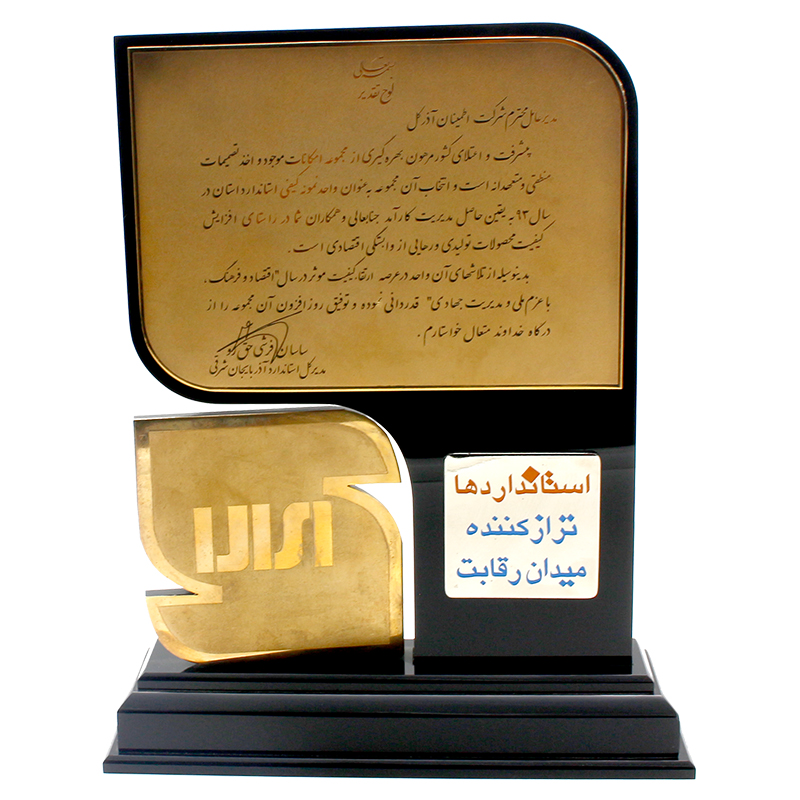 بسمه تعالی
لوح تقدیر
مدیر عامل محترم شرکت اطمینان آذر گل
پیشرفت و اعتلای کشور مرهون بهره گیری از مجموعه امکانات موجود و اخذ تصمیمات
منطقی و متعهدانه است و انتخاب آن مجموعه به عنوان واحد نمونه کیفی استاندارد استان در
سال ۹۳ به یقین حاصل مدیریت کارآمد جنابعالی و همکاران شما در راستای افزایش
کیفیت محصولات تولیدی و رهایی از وابستگی اقتصادی است.
بدینوسیله از تلاشهای آن واحد در عرصه ارتقاء کیفیت موثر در سال "اقتصاد و فرهنگ،
با عزم ملی و مدیریت جهادی" قدردانی نموده و توفیق روزافزون آن مجموعه را از
درگاه خداوند متعال خواستارم.
ساسان فرشی حق رو
مدیر کل استاندارد آذربایجان شرقی
ایران
استانداردها
تراز کننده
میدان رقابت